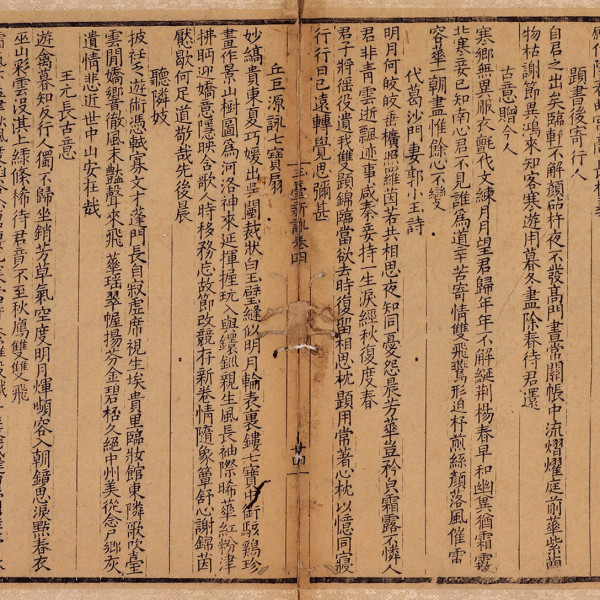 題書後寄行人
自君之出矣臨軒不解顏砧杵夜不發高門晝常關帳中流熠燿庭前華紫蘭
物枯謝節異鴻來知客寒遊用暮冬盡除春待君還
古意贈今人
寒鄉無異服衣氈代文練月月望君歸年年不解綖荆楊春早和幽兾猶霜霰
北寒妾已知南心君不見誰為道辛苦寄情雙飛鷰形迫杼煎絲顏落風催電
容華一朝盡惟餘心不變
代葛沙門妻郭小玉詩
明月何皎皎垂櫎照羅茵若共相思夜知同憂怨晨芳華豈矜皃霜露不憐人
君非青雲逝飄迹事咸秦妾持一生淚經秋復度春
君子將徭役遺我雙題錦臨當欲去時復留相思枕題用常著心枕以憶同寢
行行日已遠轉覺思彌甚
玉臺新詠卷四
廿四
丘巨源詠七寶扇
妙縞貴東夏巧媛出吳闉裁狀白玉璧縫似明月輪表裏鏤七寶中銜駭鷄珍
畫作景山樹圖為河洛神來延揮握玩入與鐶釧親生風長袖際晞華紅粉津
拂眄迎嬌意隱映含歌人時移務忘故節改競存新卷情隨象簟舒心謝錦茵
厭歇何足道敬哉先後晨
聽隣妓
披衽乏遊術憑軾寡文才蓬門長自寂虛席視生埃貴里臨妝館東隣歌吹臺
雲間嬌響徹風末艷聲來飛華瑤翠幄揚芬金碧杯久絕中州美從念尸鄉灰
遺情悲近世中山安在哉
王元長古意
遊禽暮知反行人獨不歸坐銷芳草氣空度明月輝嚬容入朝鏡思淚點春衣
巫山彩雲沒淇上綠條稀待君竟不至秋鴈雙雙飛